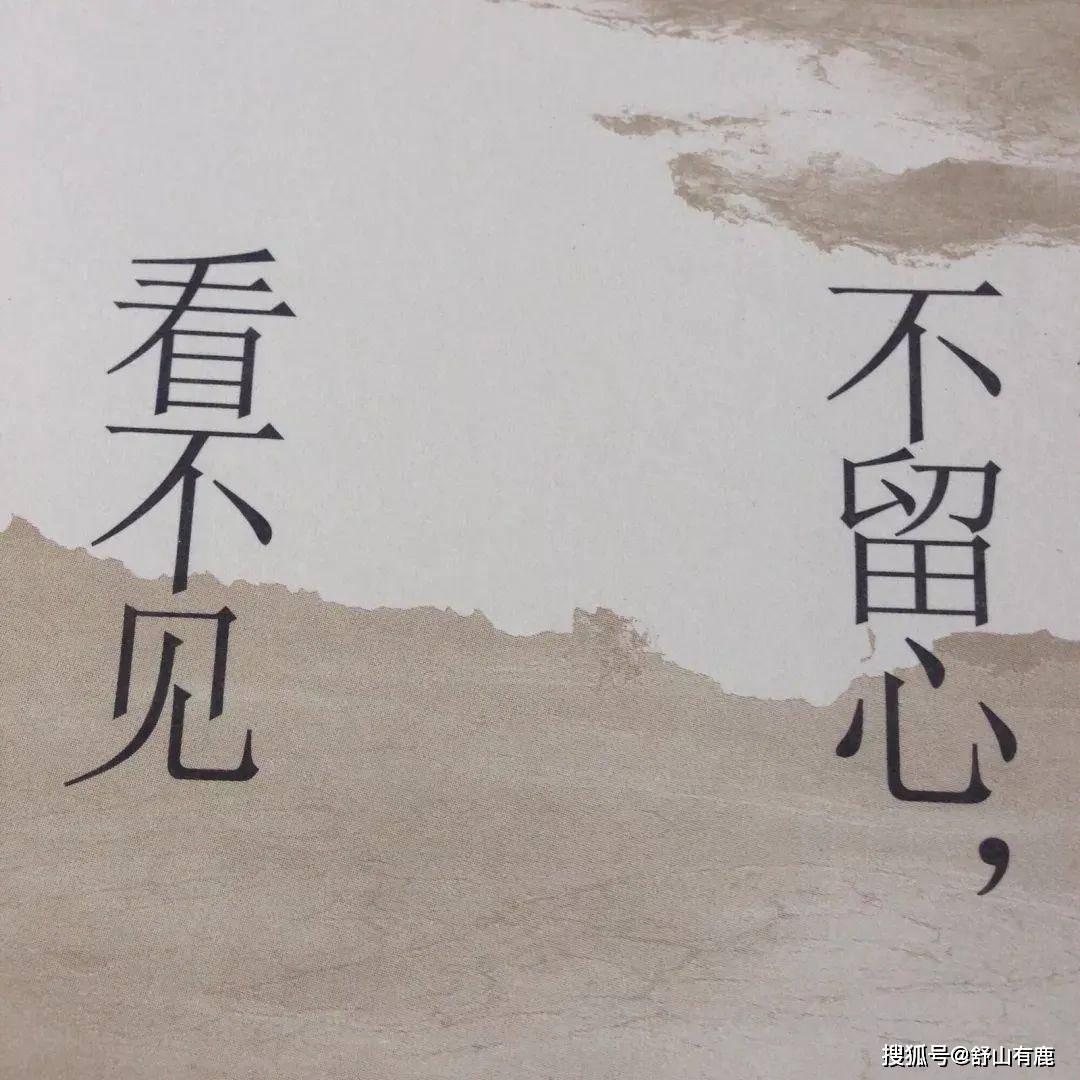 不留心，
看不见
搜狐号@舒山有鹿